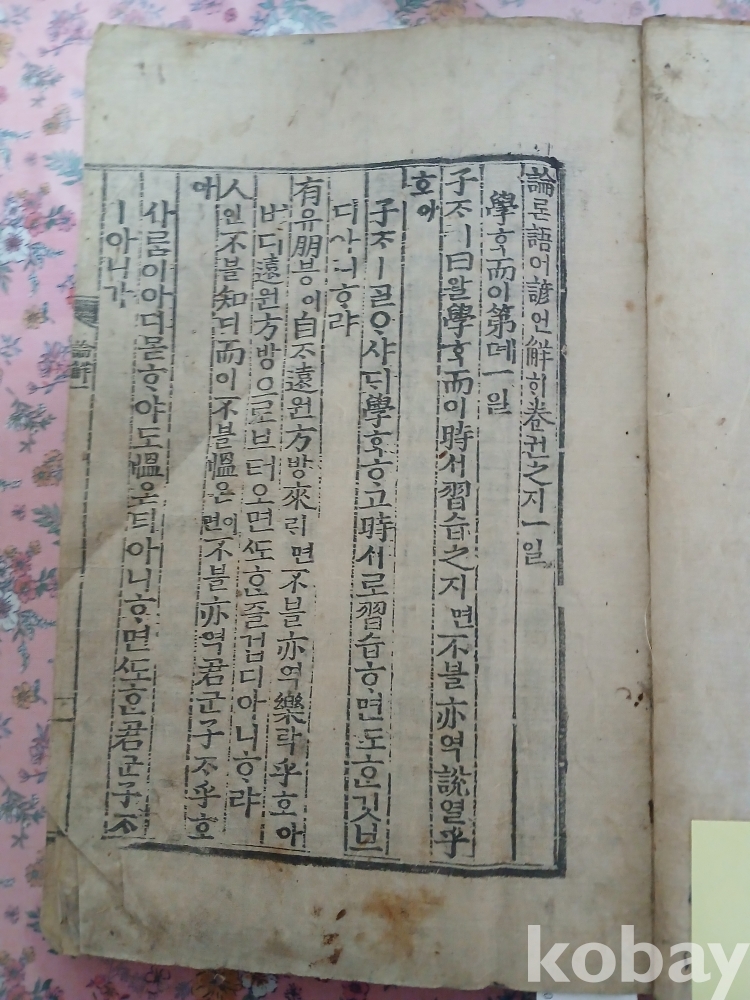 論론語어諺언解ᄒᆡ卷권之지一일
學ᄒᆞᆨ而이第뎨一일
子ᄌᆞㅣ曰왈學ᄒᆞᆨ而이時시習습之지면不블亦역說열乎
호아
子ᄌᆞㅣᄀᆞᆯᄋᆞ샤ᄃᆡ學ᄒᆞᆨᄒᆞ고時시로習습ᄒᆞ면도ᄒᆞᆫ깃브
디아니ᄒᆞ랴
有유朋붕이自ᄌᆞ遠원方방來ᄅᆡ면不블亦역樂락乎호아
버디遠원方방으로브터오면ᄯᅩᄒᆞᆫ즐겁디아니ᄒᆞ랴
人인不블知디而이不블慍온이면不블亦역君군子ᄌᆞ乎호
아
사ᄅᆞᆷ이아디몯ᄒᆞ야도慍온티아니ᄒᆞ면ᄯᅩᄒᆞᆫ君군子ᄌᆞ
ㅣ아니가
論解一
kobay